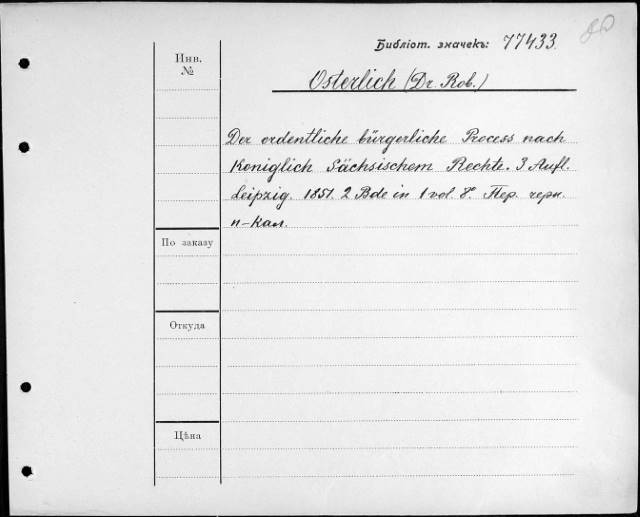 Библіот. значекъ: 77433.
Инв.
№
Osterlich (Dr. Rob.)
Der ordentliche bürgerliche Process nach
Königlich Sächsischem Rechte. 3 Aufl.
Leipzig. 1851. 2 Bde in 1 vol. 8º. Пер. черн.
п-кал.
По заказу
Откуда
Цѣна